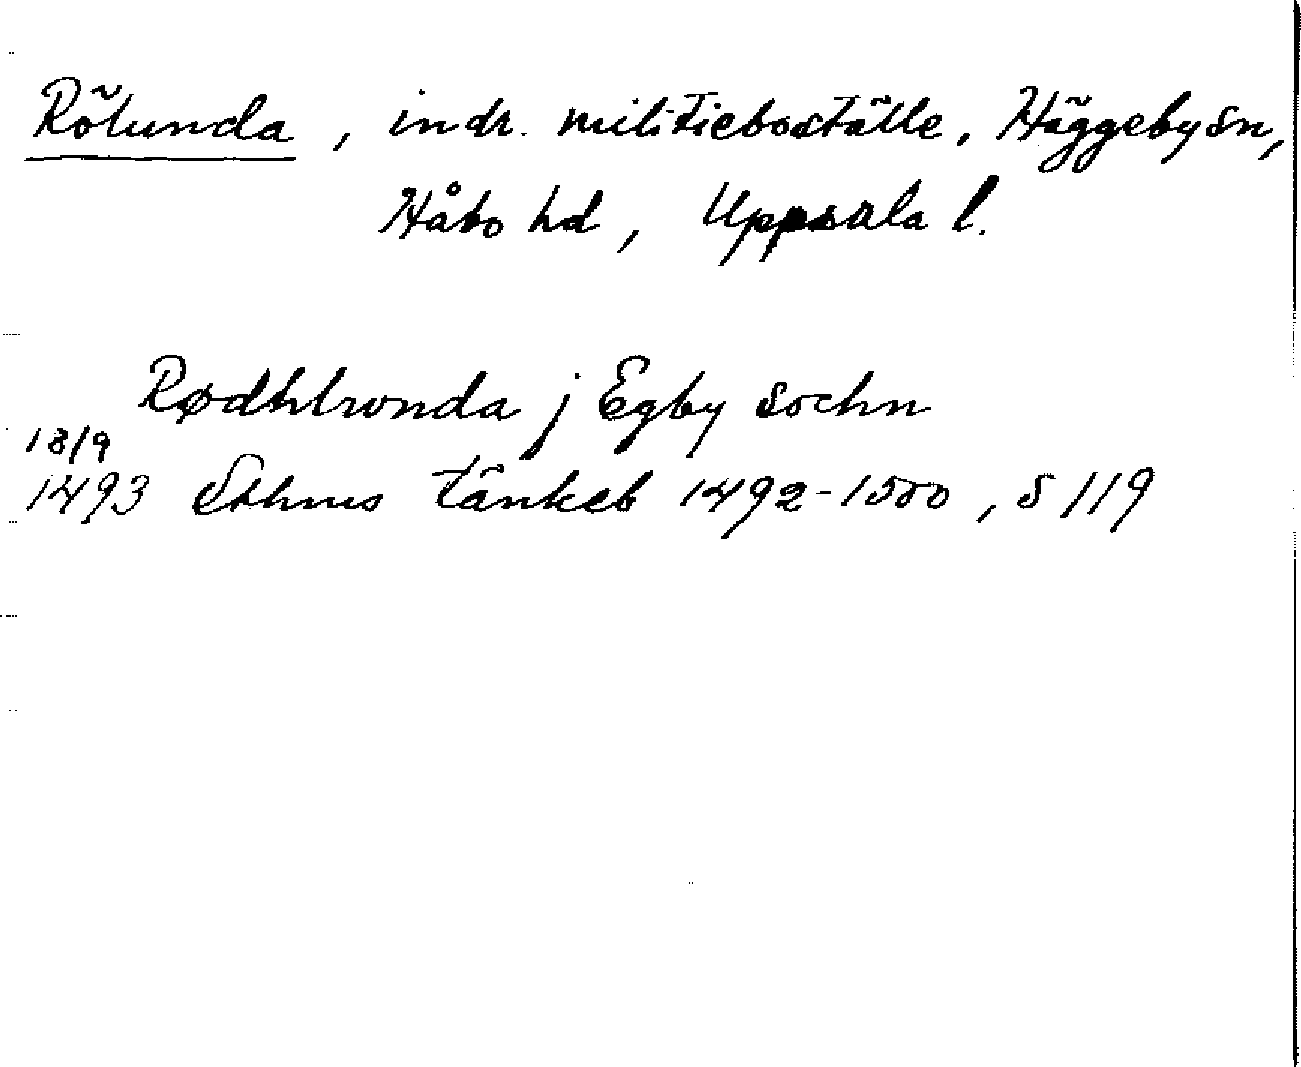 Rölunda, indr. militieboställe, Häggeby sn,
Håbo hd, Uppsala l.
Rødhlwnda j Egby sochn
18/9
1493 Sthms tänkeb 1492-1500, s 119